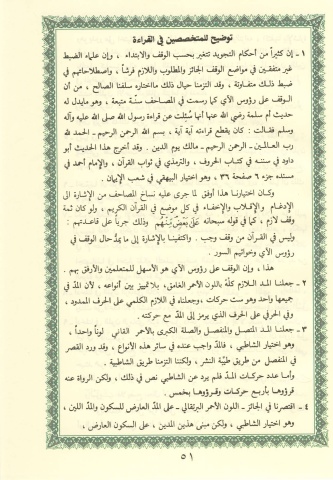 توضيح للمتخصصين في القراءة
١ - إن كثيراً من أحكام التجويد تتغير بحسب الوقف والابتداء ، وإن علماء الضبط
غير متفقين في مواضع الوقف الجائز والمطلوب واللازم فرشاً ، واصطلاحاتهم في
ضبط ذلك متفاوتة ، وقد التزمنا حيال ذلك مااختاره سلفنا الصالح ، من أن
الوقف على رؤوس الآي كما رسمت في المصاحف سنة متبعة ، وهو مايدل له
حديث أم سلمة رضي الله عنها أنها سُئِلت عن قراءة رسول الله صلى الله عليه وآله
وسلم فقالت : كان يقطع قراءته آية آية ، بسم الله الرحمن الرحيم - الحمد لله
رب العالمين - الرحمن الرحيم - مالك يوم الدين . وقد أخرج هذا الحديث أبو
داود في سننه في كتاب الحروف ، والترمذي في ثواب القرآن ، والإمام أحمد في
مسنده جزء ٦ صفحة ٣٦ ، وهو اختيار البيهقي في شعب الإيمان .
وكان اختيارنا هذا أوفق لما جرى عليه نساخ المصاحف من الإشارة الى
الإدغام والإقلاب والإخفاء في كل موضع في القرآن الكريم ، ولو كان ثمة
وقف لازم ، كما في قوله سبحانه عَلَىٰ بَعْضٍ مِّنْهُم وذلك جرياً على قاعدتهم :
وليس في القرآن من وقف وجب . واكتفينا بالإشارة إلى ما يمدُّ حال الوقف في
رؤوس الآي وخواتيم السور .
هذا ، وإن الوقف على رؤوس الآي هو الأسهل للمتعلمين والأرفق بهم .
٢ - جعلنا المد اللازم كلَّه باللون الأحمر الغامق، بلاتمييز بين أنواعه ، لأن المدّ في
جميعها واحد وهو ست حركات، وجعلناه في اللازم الكلمي على الحرف الممدود ،
وفي الحرفي على الحرف الذي يرمز إلى المدّ مع حركته .
٣ - جعلنا المد المتصل والمنفصل والصلة الكبرى بالأحمر القاني لوناً واحداً ،
وهو اختيار الشاطبي ، فالمدّ واجب عنده في سائر هذه الأنواع ، وقد ورد القصر
في المنفصل من طريق طيّبة النشر ، ولكننا التزمنا طريق الشاطبية .
وأما عدد حركات المدّ فلم يرد عن الشاطبي نص في ذلك ، ولكن الرواة عنه
قرؤوها بأربع حركات وقرؤوها بخمس .
٤ - اقتصرنا في الجائز - اللون الأحمر البرتقالي - على المدّ العارض للسكون والمدّ اللين ،
وهو اختيار الشاطبي ، ولكن مبنى هذين المدين ، على السكون العارض ،
٥١